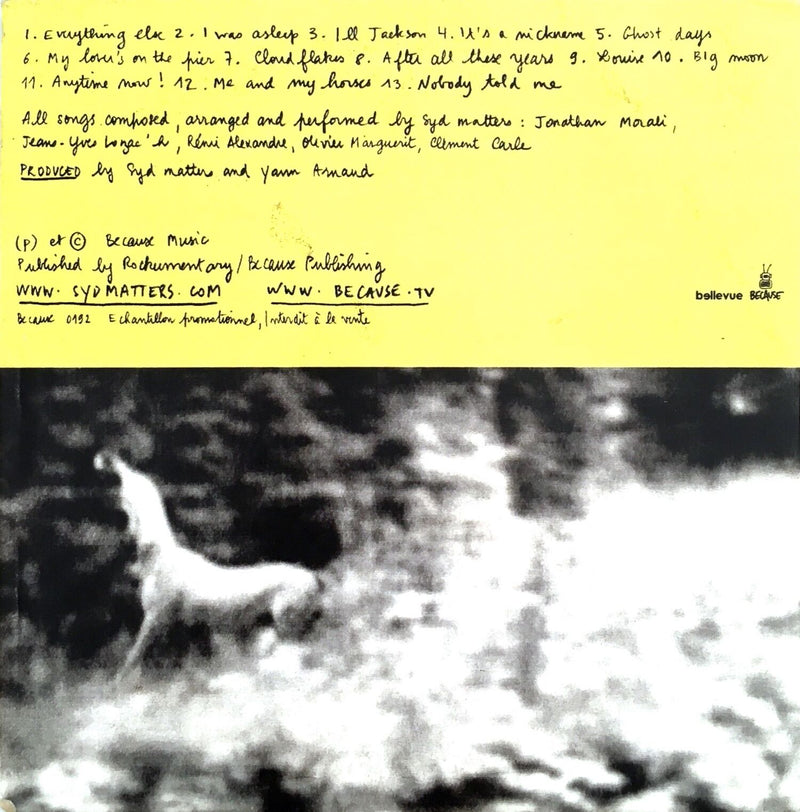 1. Everything else 2. I was asleep 3. Ill Jackson 4. It's a nickname 5. Ghost days
6. My lover's on the pier 7. Cloudflakes 8. After all these years 9. Louise 10. Big moon
11. Anytime now! 12. Me and my horses 13. Nobody told me
All songs composed, arranged and performed by Syd matters: Jonathan Morali,
Jean-Yves Lozac'h, Rémi Alexandre, Olivier Marguerit, Clément Carle
PRODUCED by Syd matters and Yann Arnaud
(P) et © Because Music
Published by Rockumentary/Because Publishing
WWW.SYDMATTERS.COM WWW.BECAUSE.TV
Because 0192 Echantillon promotionnel, Interdit à la vente
bellevue BECAUSE